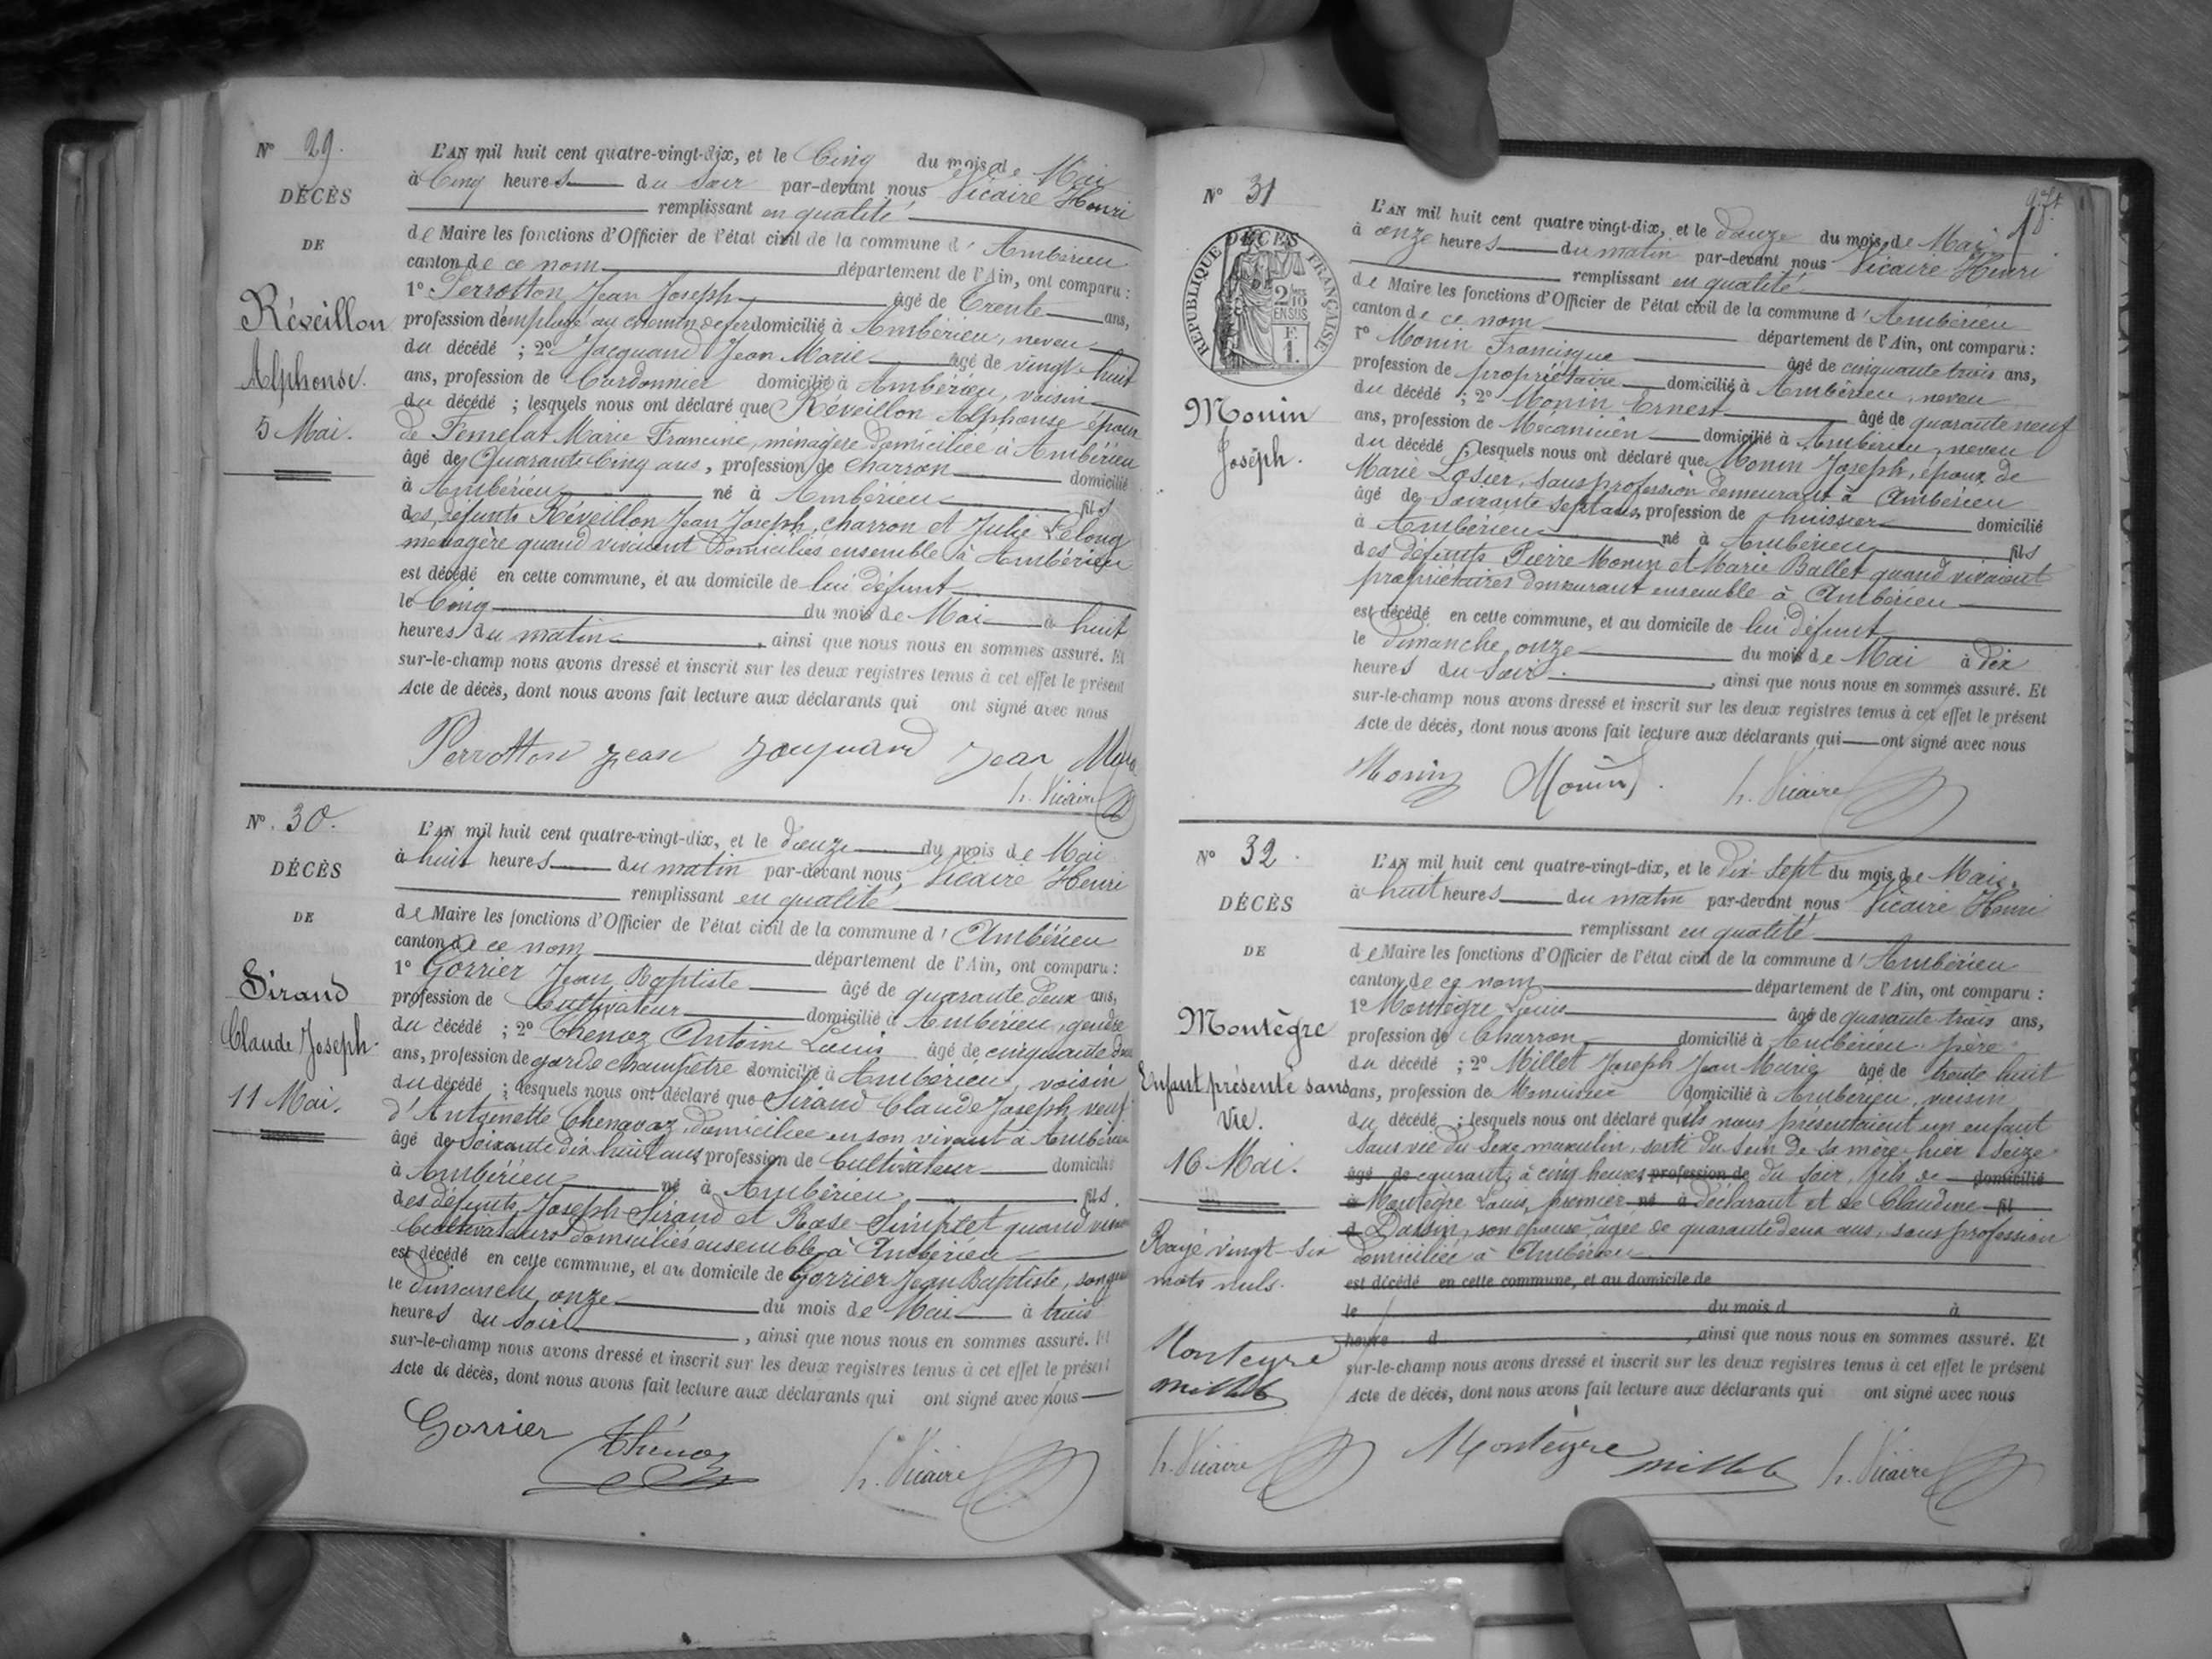 N° 29.
DÉCÈS
DE
Réveillon
Alphonse.
5 Mai.
L'AN mil huit cent quatre-vingt-dix, et le Cinq du mois de Mai
à Cinq heures du soir par-devant nous Vicaire Henri
remplissant en qualité
de Maire les fonctions d'Officier de l'état civil de la commune d' Ambérieu
canton de ce nom département de l'Ain, ont comparu :
1° Perrotton Jean Joseph âgé de Trente ans,
profession d'employé au chemin de fer domicilié à Ambérieu, neveu
du décédé ; 2° Jacquand Jean Marie âgé de vingt-huit
ans, profession de Cordonnier domicilié à Ambérieu, voisin
du décédé ; lesquels nous ont déclaré que Réveillon Alphonse époux
de Femelat Marie Francine, ménagère domiciliée à Ambérieu
âgé de Quarante Cinq ans, profession de Charron domicilié
à Ambérieu né à Ambérieu fils
des défunts Réveillon Jean Joseph, charron et Julie Lelong
ménagère quand vivaient domiciliés ensemble à Ambérieu
est décédé en cette commune, et au domicile de lui défunt
le Cinq du mois de Mai à huit
heures du matin, ainsi que nous nous en sommes assuré. Et
sur-le-champ nous avons dressé et inscrit sur les deux registres tenus à cet effet le présent
Acte de décès, dont nous avons fait lecture aux déclarants qui ont signé avec nous
Perrotton Jean Jacquand Jean
h. Vicaire
N° 30.
DÉCÈS
DE
Sirand
Claude Joseph.
11 Mai.
L'AN mil huit cent quatre-vingt-dix, et le douze du mois de Mai
à huit heures du matin par-devant nous Vicaire Henri
remplissant en qualité
de Maire les fonctions d'Officier de l'état civil de la commune d' Ambérieu
canton de ce nom département de l'Ain, ont comparu :
1° Gorrier Jean Baptiste âgé de quarante deux ans,
profession de Cultivateur domicilié à Ambérieu, gendre
du décédé ; 2° Chenoz Antoine Louis âgé de cinquante deux
ans, profession de garde champêtre domicilié à Ambérieu, voisin
du décédé ; lesquels nous ont déclaré que Sirand Claude Joseph, veuf
d'Antoinette Chenavaz, domiciliée en son vivant à Ambérieu
âgé de soixante dix huit ans profession de Cultivateur domicilié
à Ambérieu né à Ambérieu, fils
des défunts Joseph Sirand et Rose Simplet quand
Cultivateurs domiciliés ensemble à Ambérieu
est décédé en cette commune, et au domicile de Gorrier Jean Baptiste, son
le dimanche onze du mois de Mai à trois
heures du soir, ainsi que nous nous en sommes assuré. Et
sur-le-champ nous avons dressé et inscrit sur les deux registres tenus à cet effet le présent
Acte de décès, dont nous avons fait lecture aux déclarants qui ont signé avec nous
Gorrier Thénoz h. Vicaire
N° 31
DÉCÈS
DE
RÉPUBLIQUE FRANÇAISE
2/10 EN SUS
F. 1.
Monin
Joseph.
L'AN mil huit cent quatre vingt-dix, et le douze du mois de Mai
à onze heures du matin par-devant nous Vicaire Henri
remplissant en qualité
de Maire les fonctions d'Officier de l'état civil de la commune d' Ambérieu
canton de ce nom département de l'Ain, ont comparu :
1° Monin Francisque âgé de cinquante trois ans,
profession de propriétaire domicilié à Ambérieu, neveu
du décédé ; 2° Monin Ernest âgé de quarante neuf
ans, profession de Mécanicien domicilié à Ambérieu, neveu
du décédé ; lesquels nous ont déclaré que Monin Joseph, époux de
Marie Losier, sans profession demeurant à Ambérieu
âgé de Soixante sept ans, profession de huissier domicilié
à Ambérieu né à Ambérieu fils
des défunts Pierre Monin et Marie Ballet quand vivaient
propriétaires demeurant ensemble à Ambérieu
est décédé en cette commune, et au domicile de lui défunt
le dimanche onze du mois de Mai à dix
heures du soir, ainsi que nous nous en sommes assuré. Et
sur-le-champ nous avons dressé et inscrit sur les deux registres tenus à cet effet le présent
Acte de décès, dont nous avons fait lecture aux déclarants qui ont signé avec nous
Monin Monin h. Vicaire
N° 32.
DÉCÈS
DE
Montègre
Enfant présenté sans
vie.
16 Mai.
Rayé vingt-six
mots nuls.
Monteyre
Millet
h. Vicaire
L'AN mil huit cent quatre-vingt-dix, et le dix-sept du mois de Mai
à huit heures du matin par-devant nous Vicaire Henri
remplissant en qualité
de Maire les fonctions d'Officier de l'état civil de la commune d' Ambérieu
canton de ce nom département de l'Ain, ont comparu :
1° Montègre Louis âgé de quarante trois ans,
profession de Charron domicilié à Ambérieu, père
du décédé ; 2° Millet Joseph Jean Marie âgé de trente huit
ans, profession de Menuisier domicilié à Ambérieu, voisin
du décédé ; lesquels nous ont déclaré qu'ils nous présentaient un enfant
sans vie du sexe masculin, sorti du sein de sa mère hier seize
âgé de courant, à cinq heures profession de du soir, fils de domicilié
à Montègre Louis, premier né à déclarant et de Claudine fil
d Dassin, son épouse, âgée de quarante deux ans, sans profession
domiciliée à Ambérieu
est décédé en cette commune, et au domicile de
le du mois d à
heure d, ainsi que nous nous en sommes assuré. Et
sur-le-champ nous avons dressé et inscrit sur les deux registres tenus à cet effet le présent
Acte de décès, dont nous avons fait lecture aux déclarants qui ont signé avec nous
Monteyre Millet h. Vicaire